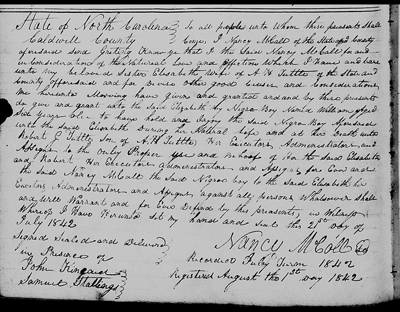 State of North Carolina To all people unto Whom these presents Shall
Caldwell County Come, I Nancy McCall of the State and County
aforesaid Send Greeting Know ye that I the Said Nancy McCall for and
in Consideration of the Natural Love and Affections Which I Have and bare
unto my beloved Sister Elizabeth Wife of A H Tuttle of the State and
County aforesaid and for Divers other good Causes and Considerations
me hereunto Moving have given and granted and and by these presents
do give and grant unto the Said Elizabeth my Negroe Boy Named William aged
Six years old to have hold and Enjoy the Said Negroe Boy
unto the Said Elizabeth During her Natural life and at her Death unto
Robert Tuttle Son of A H Tuttle Her Executors, Administrators and
Assigns to the only Proper use and behoof of Her the Said Elizabeth
and Robert Her Executors Administrators and Assigns for Ever and
the Said Nancy McCall the Said Negroe boy to the Said Elizabeth her
Executors Administrators and Assigns against all persons Whatsoever Shall
and Will Warrant and for Ever Defend by these presents, in Witness
Whereof I Have Hereunto Set my Hand and Seal this 21st Day of
July 1842
Signed Sealed and Delivered Nancy McCall
in Presence of Recorded July Term 1842
John Kincaid Registered August the 1st Day 1842
Samuel Stallings